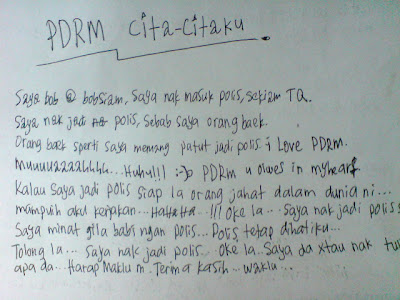 PDRM Cita-Citaku
Saya bob @ bobsiam, saya nak masuk polis, sekiam TQ.
Saya nak jadi polis, sebab saya orang baek.
Orang baek sperti saya memang patut jadi polis. i Love PDRM.
Muuuuzzzahhhh... Huhu!!! :-> PDRM u olwes in myheart
Kalau saya jadi polis siap la orang jahat dalam dunia ni...
mampuih akui kerjakan... HaHaHa.. !!! Oke la... Saya nak jadi polis s
Saya minat gila babi ngan polis... Polis tetap dihatiku...
Tolong la... saya nak jadi polis... oke la.. Saya da xtau nak tu
apa da... Harap Maklum. Terima kasih.. waklu...